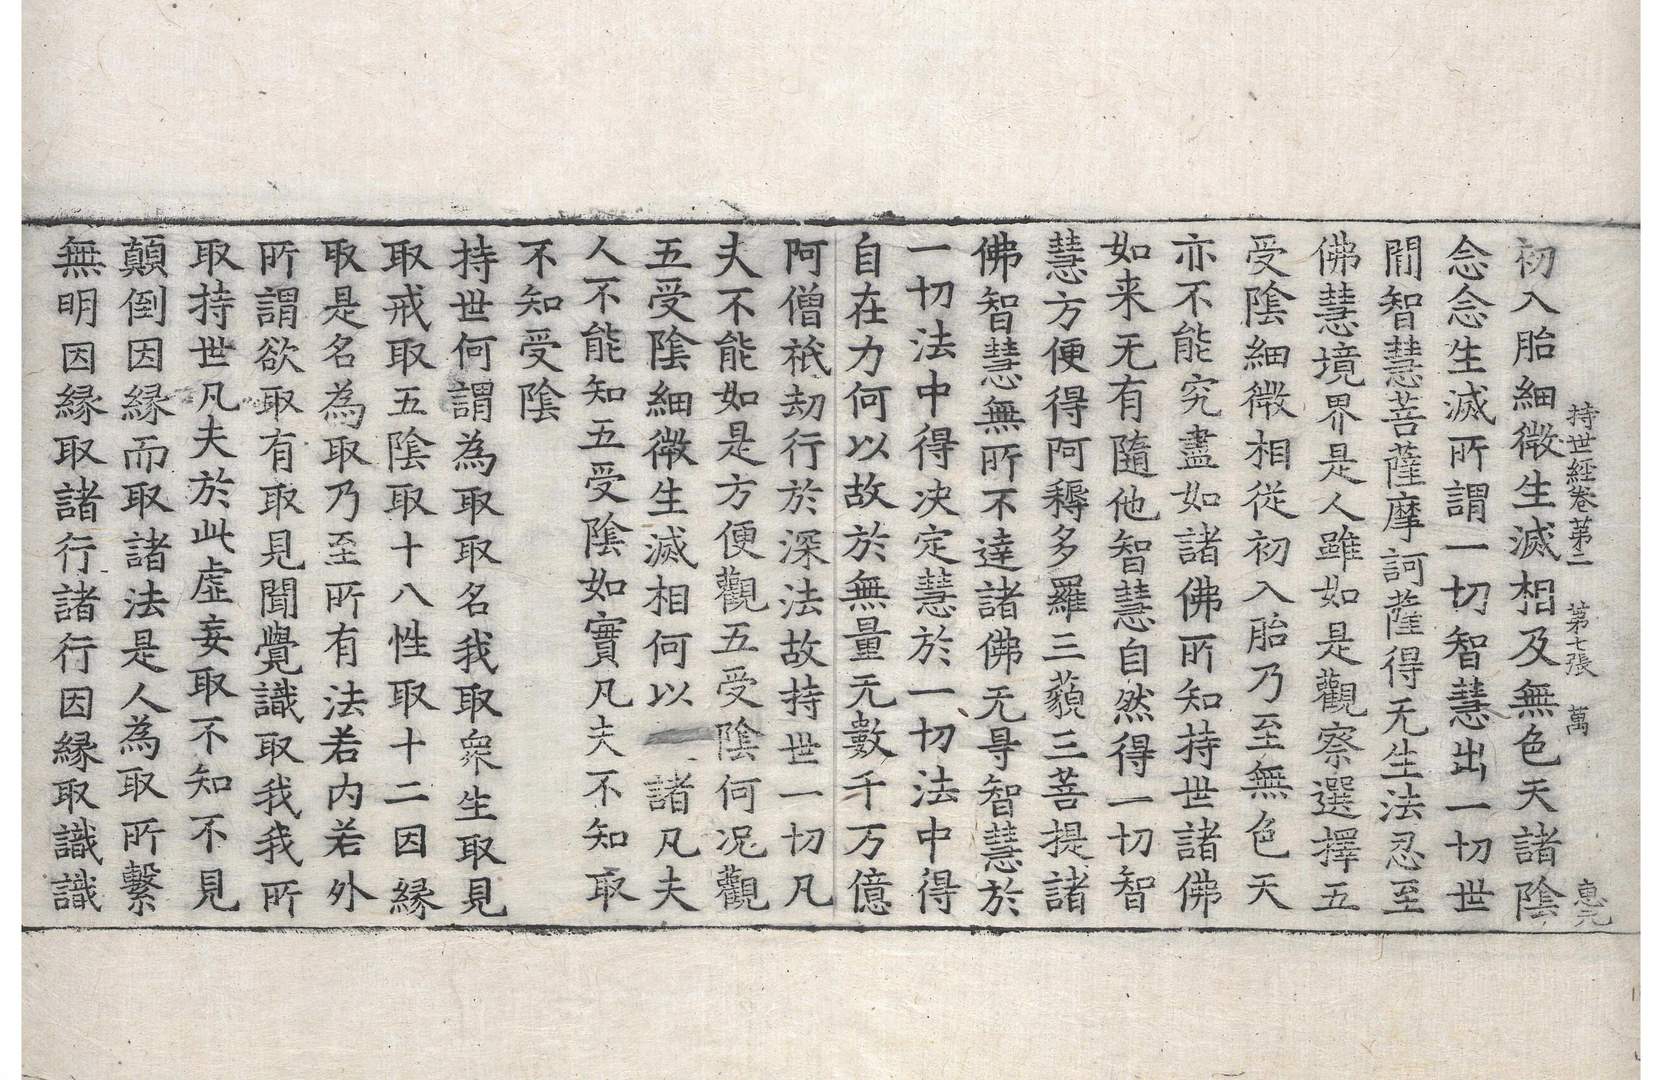 持世經卷第二 第七張 萬 惠元
初入胎細微生滅相及無色天諸陰
念念生滅所謂一切智慧出一切世
間智慧菩薩摩訶薩得无生法忍至
佛慧境界是人雖如是觀察選擇五
受陰細微相從初入胎乃至無色天
亦不能究盡如諸佛所知持世諸佛
如来无有隨他智慧自然得一切智
慧方便得阿耨多羅三藐三菩提諸
佛智慧無所不達諸佛无㝵智慧於
一切法中得决定慧於一切法中得
自在力何以故於無量无數千万億
阿僧祇劫行於深法故持世一切凡
夫不能如是方便觀五受陰何况觀
五受陰細微生滅相何以 諸凡夫
人不能知五受陰如實凡夫不知取
不知受陰
持世何謂為取取名我取衆生取見
取戒取五陰取十八性取十二因縁
取是名為取乃至所有法若内若外
所謂欲取有取見聞覺識取我我所
取持世凡夫於此虛妄取不知不見
顛倒因縁而取諸法是人為取所繫
無明因縁取諸行諸行因縁取識識